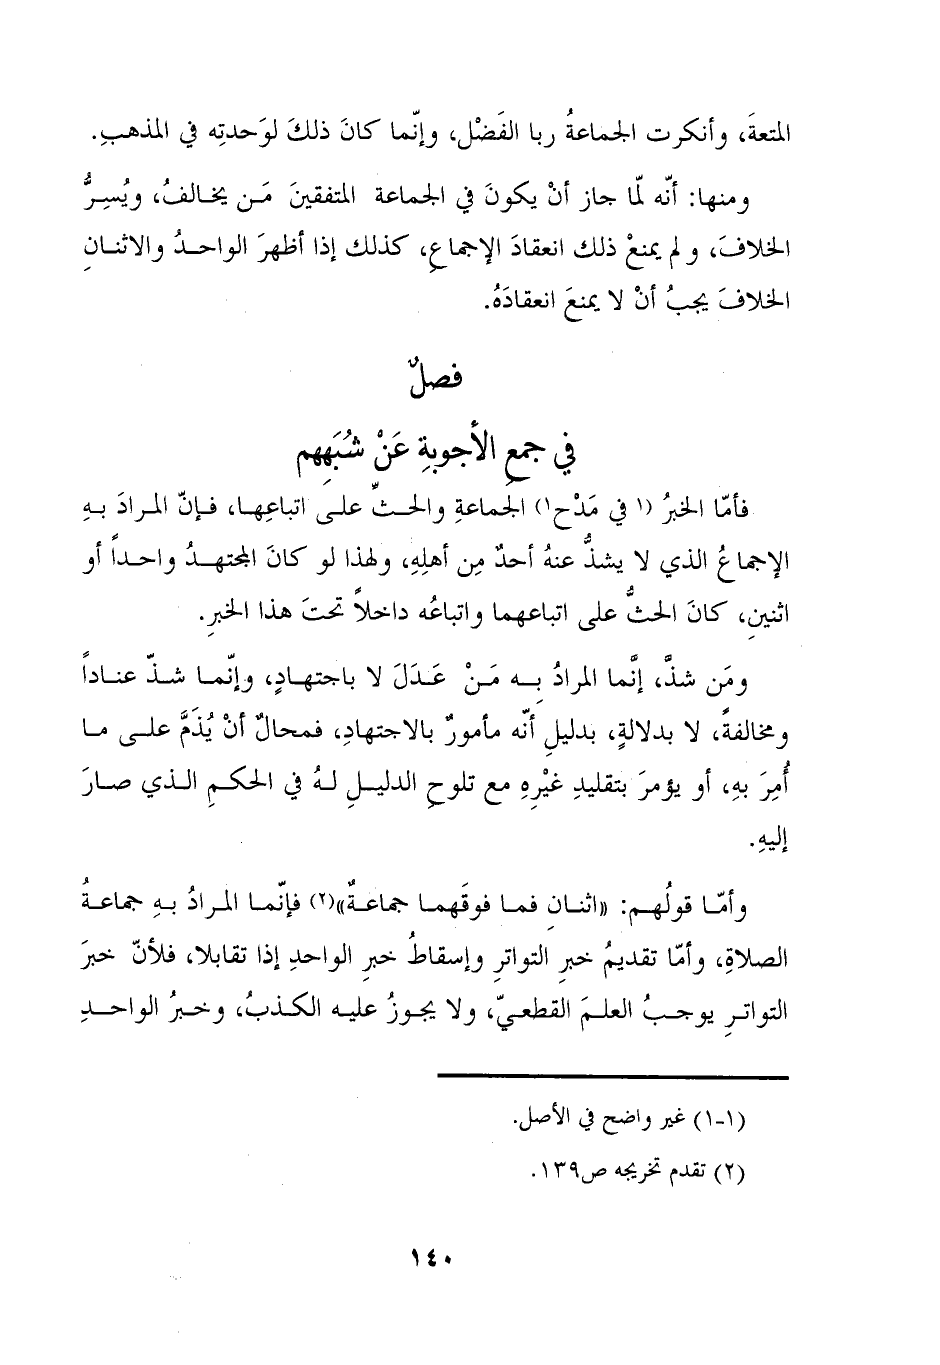 المتعةَ، وأنكرت الجماعةُ ربا الفَضْل، وإنّما كانَ ذلكَ لوَحدتِه في المذهبِ.
ومنها: أنّه لمّا جاز أنْ يكونَ في الجماعة المتفقينَ مَن يخالفُ، ويُسِرُّ
الخلافَ، ولم يمنعْ ذلك انعقادَ الإجماعِ، كذلك إذا أظهرَ الواحدُ والاثنانِ
الخلافَ يجبُ أنْ لا يمنعَ انعقادَهُ.
فصلٌ
في جمعِ الأجوبةِ عَنْ شُبَهِهِم
فأمّا الخبرُ (١ في مَدْح١) الجماعةِ والحثّ على اتباعِها، فإنّ المرادَ بهِ
الإجماعُ الذي لا يشذُّ عنهُ أحدٌ مِن أهلِهِ، ولهذا لو كانَ المجتهدُ واحداً أو
اثنينِ، كانَ الحثُّ على اتباعهما واتباعُه داخلاً تحتَ هذا الخبرِ.
ومَن شذَّ، إنَّما المرادُ بِه مَنْ عَدَلَ لا باجتهادٍ، وإنّما شذّ عناداً
ومخالفةً، لا بدلالةٍ، بدليلِ أنّه مأمورٌ بالاجتهادِ، فمحالٌ أنْ يُذَمَّ على ما
أُمِرَ بهِ، أو يؤمرَ بتقليدِ غيْرِهِ مع تلوحِ الدليلِ لهُ في الحكمِ الذي صارَ
إليهِ.
وأمّا قولُهم: «اثنانِ فما فوقَهما جماعةٌ»(٢) فإنّما المرادُ بهِ جماعةُ
الصلاةِ، وأمّا تقديمُ خبرِ التواترِ وإسقاطُ خبرِ الواحدِ إذا تقابلا، فلأنّ خبرَ
التواترِ يوجبُ العلمَ القطعيّ، ولا يجوزُ عليه الكذبُ، وخبرُ الواحدِ
(١-١) غير واضح في الأصل.
(٢) تقدم تخريجه ص١٣٩.
١٤٠